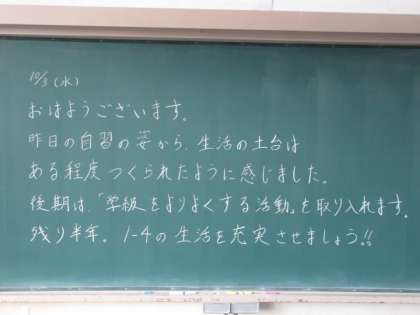 10/3(水)
おはようございます。
昨日の自習の姿から、生活の土台は
ある程度つくられたように感じました。
後期は、「学級をよりよくする活動」を取り入れます。
残り半年。1-4の生活を充実させましょう!!